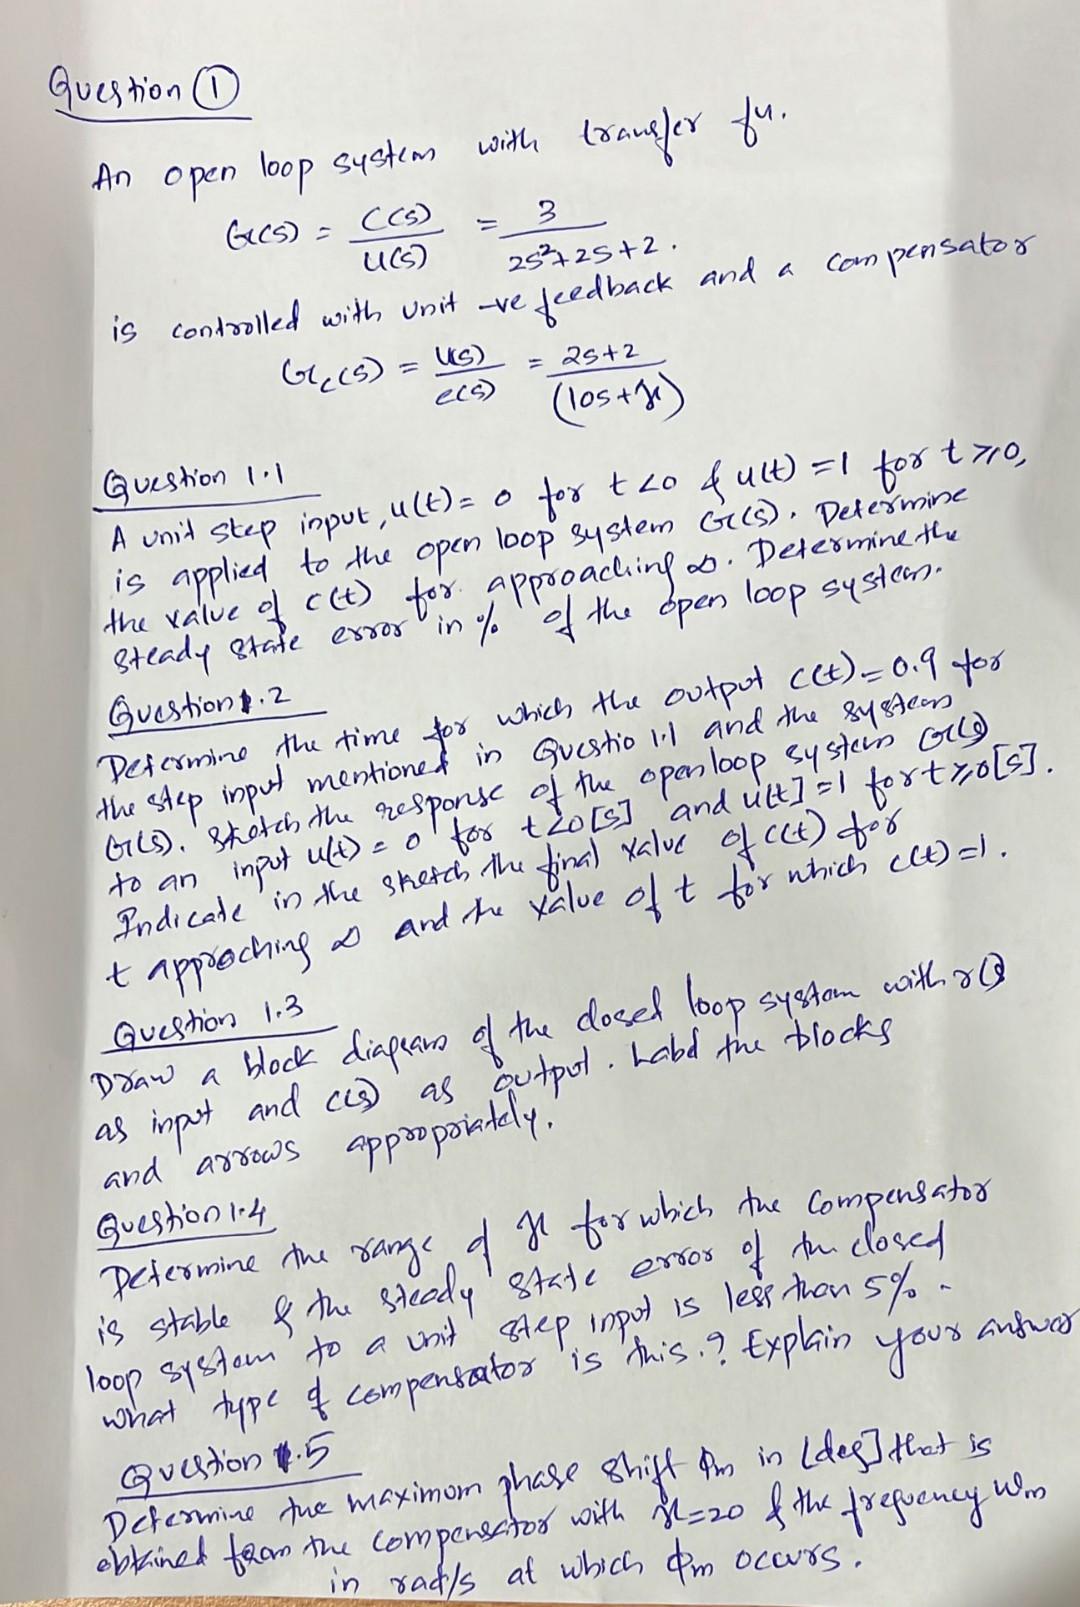 Question ①
An open loop system with transfer fu.
G(s) = C(s) / U(s) = 3 / 2s²+2s+2.
is controlled with unit -ve feedback and a compensator
Gc(s) = U(s) / e(s) = 2s+2 / (10s+x)
Question 1.1
A unit step input, u(t) = 0 for t<0 & u(t) = 1 for t≥0,
is applied to the open loop system G(s). Determine
the value of c(t) for approaching ∞. Determine the
steady state error in % of the open loop system.
Question 1.2
Determine the time for which the output c(t)=0.9 for
the step input mentioned in Questio 1.1 and the system
G(s). Sketch the response of the open loop system G(s)
to an input u(t) = 0 for t<0[s] and u[t]=1 for t≥0[s].
Indicate in the sketch the final value of c(t) for
t approching ∞ and the value of t for which c(t)=1.
Question 1.3
Draw a block diagram of the closed loop system with r(s)
as input and c(s) as output. Label the blocks
and arrows appropriately.
Question 1.4
Determine the range of x for which the compensator
is stable & the steady state error of the closed
loop system to a unit step input is less than 5%.
what type of compensator is this.? Explain your answer
Question 1.5
Determine the maximum phase shift φm in [deg] that is
obtained from the compensator with x=20 & the frequency ωm
in rad/s at which φm occurs.